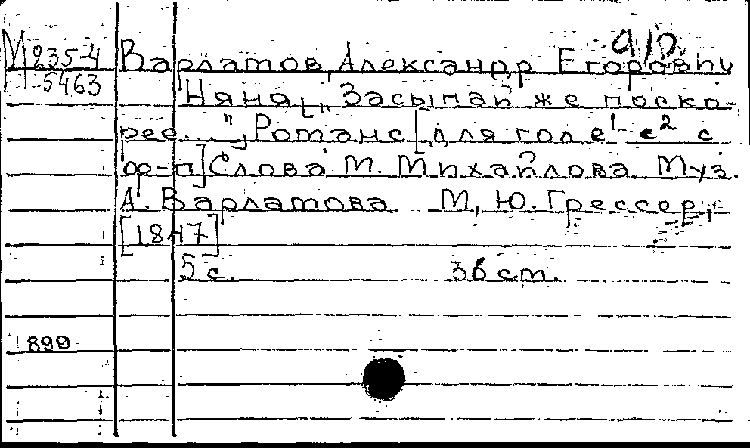 М 235-4
5463
Варламов, Александр Егорович
"Няня", [„Засыпай же поско-
рее...“], Романс [для голоса с
ф-п] Слова М. Михайлова. Муз.
А. Варламова. М., Ю. Грессер,
[1847]
5 с. 36 cm.
899